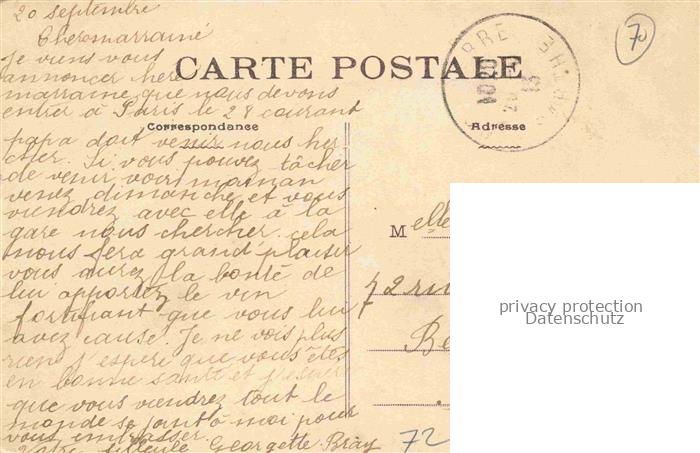 20 septembre
Chere marraine
Je viens vous
annoncer here
marraine que nous devons
entrer à Paris le 28 courant
papa doit venir nous her
cher. Si vous pouvez tâcher
de venir voir maman
venez dimanche et vous
viendrez avec elle à la
gare nous chercher. cela
nous fera grand plaisir
vous aurez la bonté de
lui apportez le vin
fortifiant que vous lui
avez causé. Je ne vois plus
rien j'espère que vous êtes
en bonne santé et j'espère
que vous viendrez tout le
monde se joint à moi pour
vous embrasser.
Votre filleule Georgette Bray
CARTE POSTALE
Correspondance
Adresse
SARTHE
70
Melle
72 ru
Be
72
privacy protection
Datenschutz